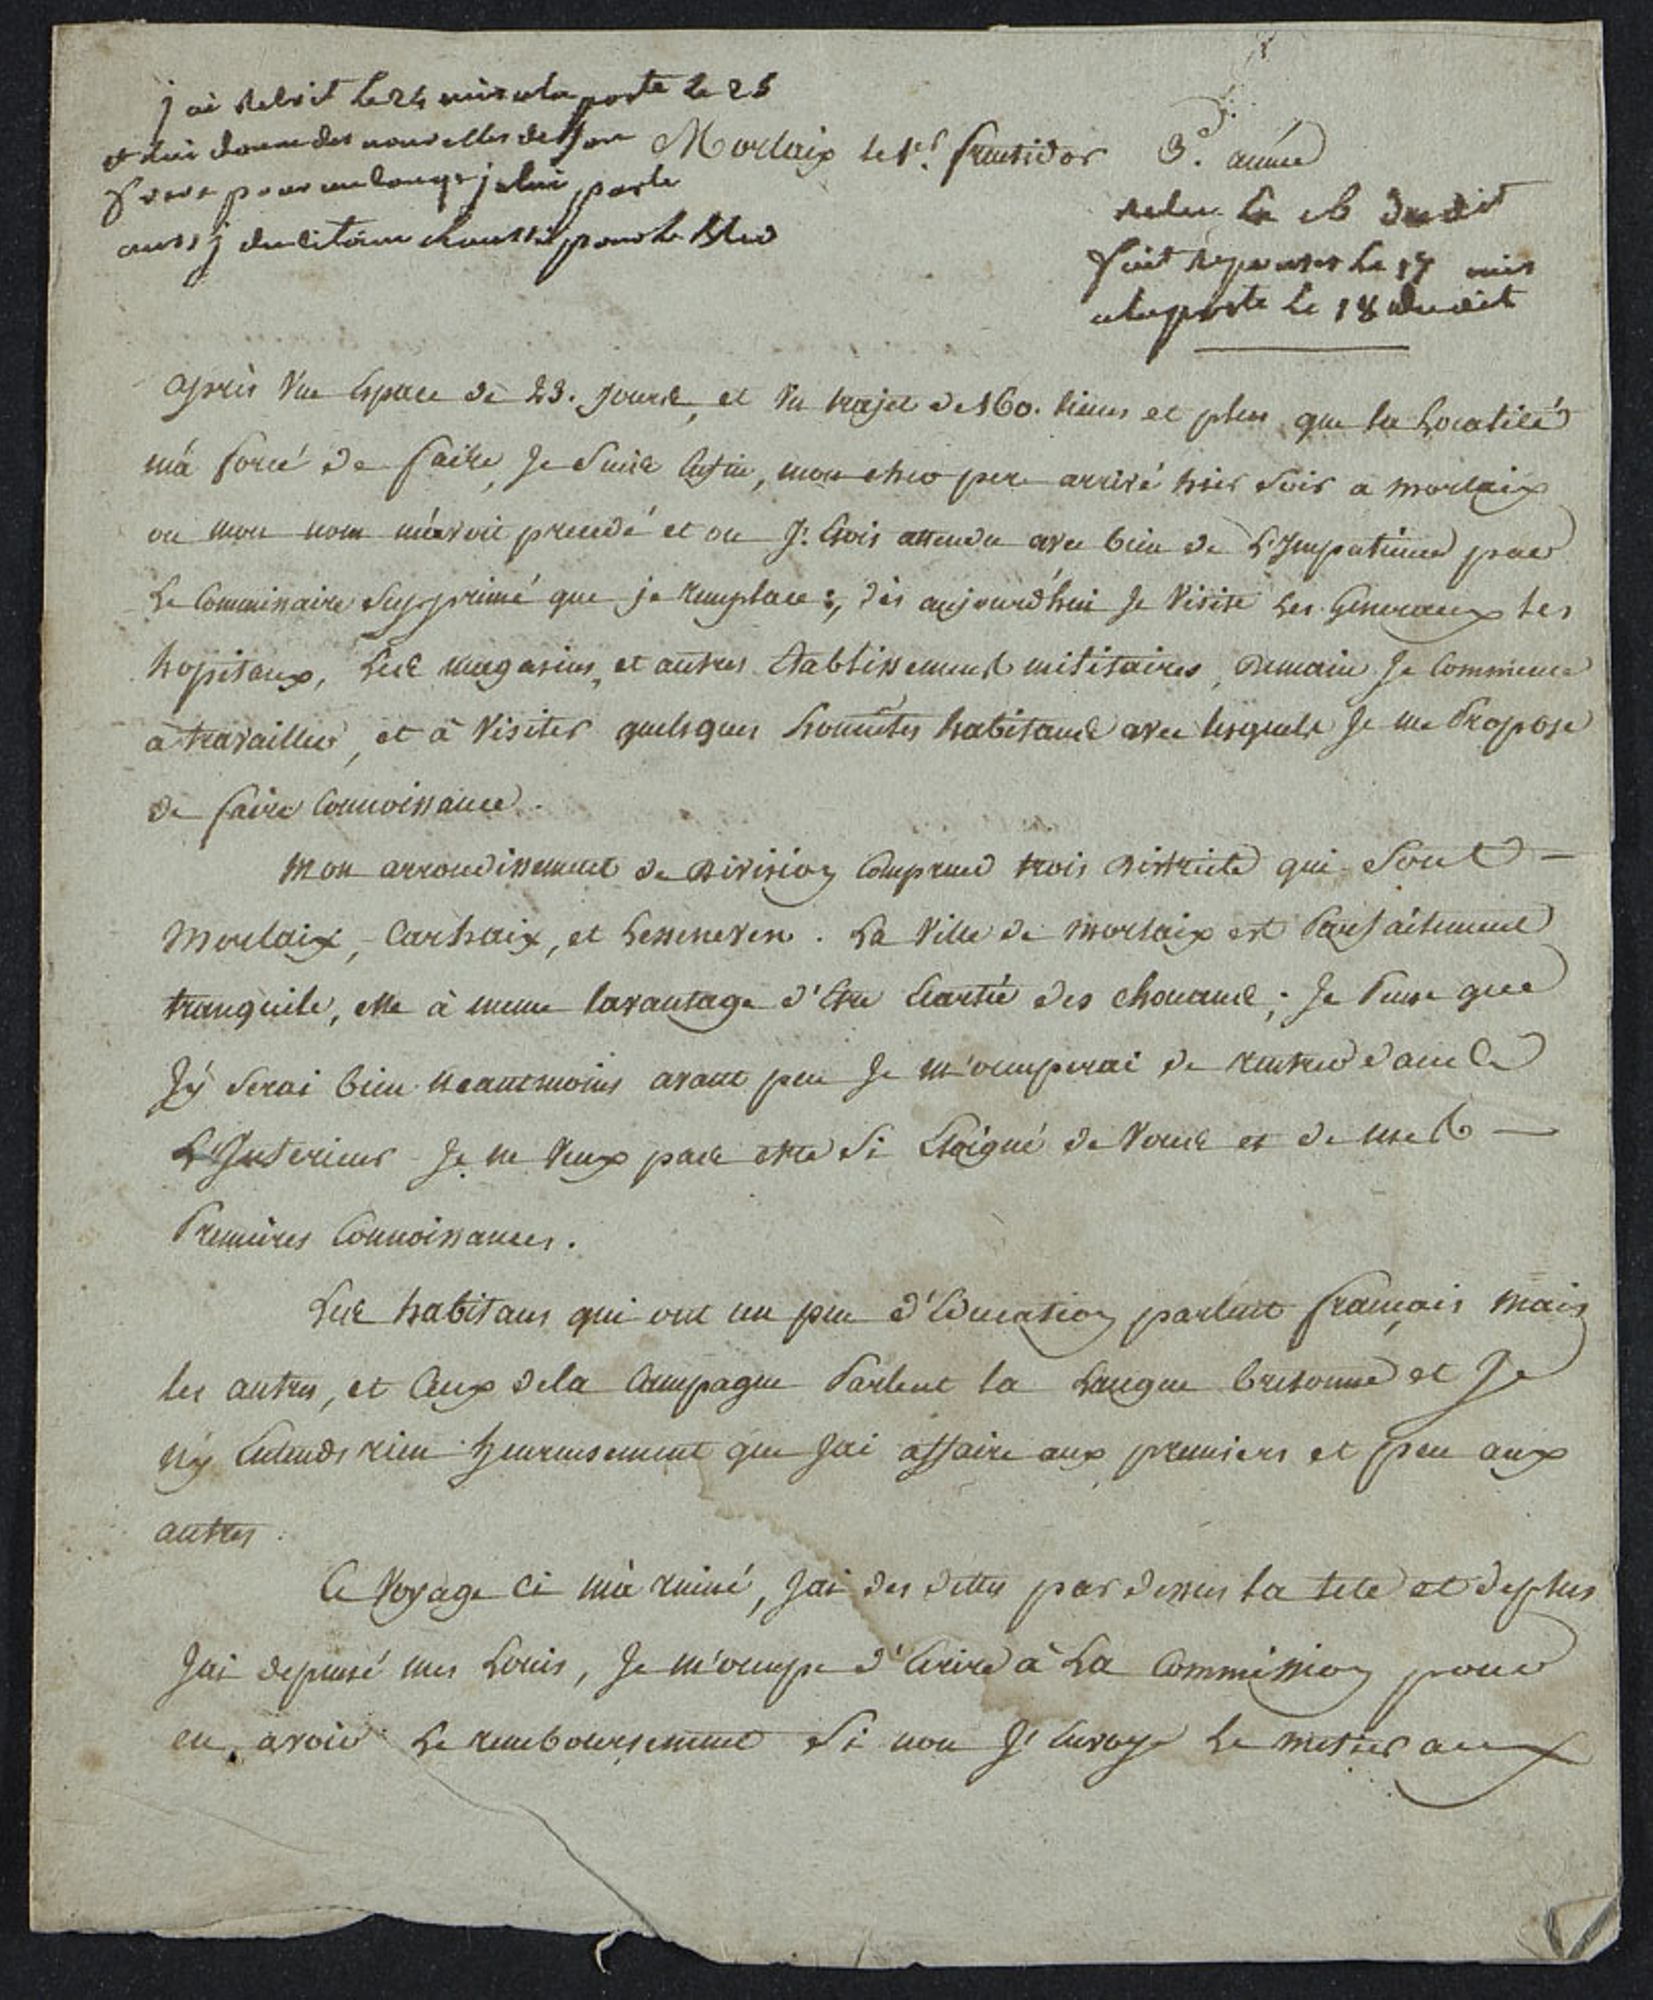 j ai Rebrit le 24 mis ala poste le 25
et lui donne des nouvelles de son
frere pour melange je lui parle
aussj du citoien pour le bled
Morlaix le 1er. fructidor 3e. année
Relu le 16 dudit
fait reponses le 17 mis
alaposte le 18 dudit
après Une Espace de 23. jours, et Un trajet de 160. lieues et plus que la Localité
m'a forcé de faire, Je Suis Enfin, mon cher pere arrivé hier Soir a morlaix
ou mon nom m'avoit precedé et ou J'. Etois attendu avec bien de L'Impatience par
Le Commissaire Supprimé que je remplace ; dès aujourd'hui Je Visite Les Generaux les
hopitaux, Les magasins, et autres Etablissements militaires, Demain Je Commence
à travailler, et à Visiter quelques honnêtes habitans avec lesquels Je me Propose
de faire Connoissance.
Mon arrondissement de Division Comprend trois Districts qui Sont —
Morlaix, Carhaix, et Lesneven. La Ville de Morlaix est Parfaitement
tranquile, elle à meme lavantage d'Etre Ecartée des chouans ; Je Pense que
J'y Serai bien neantmoins avant peu Je m'occuperai de rentrer dans
L'Interieur Je ne Veux pas etre Si Eloigné de Vous et de mes —
Premières Connoissances.
Les habitans qui ont un peu d'Education parlent français mais
les autres, et Ceux dela Campagne Parlent la Langue bretonne et Je
n'y Entends rien heureusement que J'ai affaire aux premiers et peu aux
autres.
Ce Voyage Ci m'à ruiné, J'ai des dettes par dessus la tete et deplus
J'ai depensé mes Louis, Je m'occupe d'Ecrire à La Commission pour
en avoir Le remboursement Si non J'Envoye Le metier aux